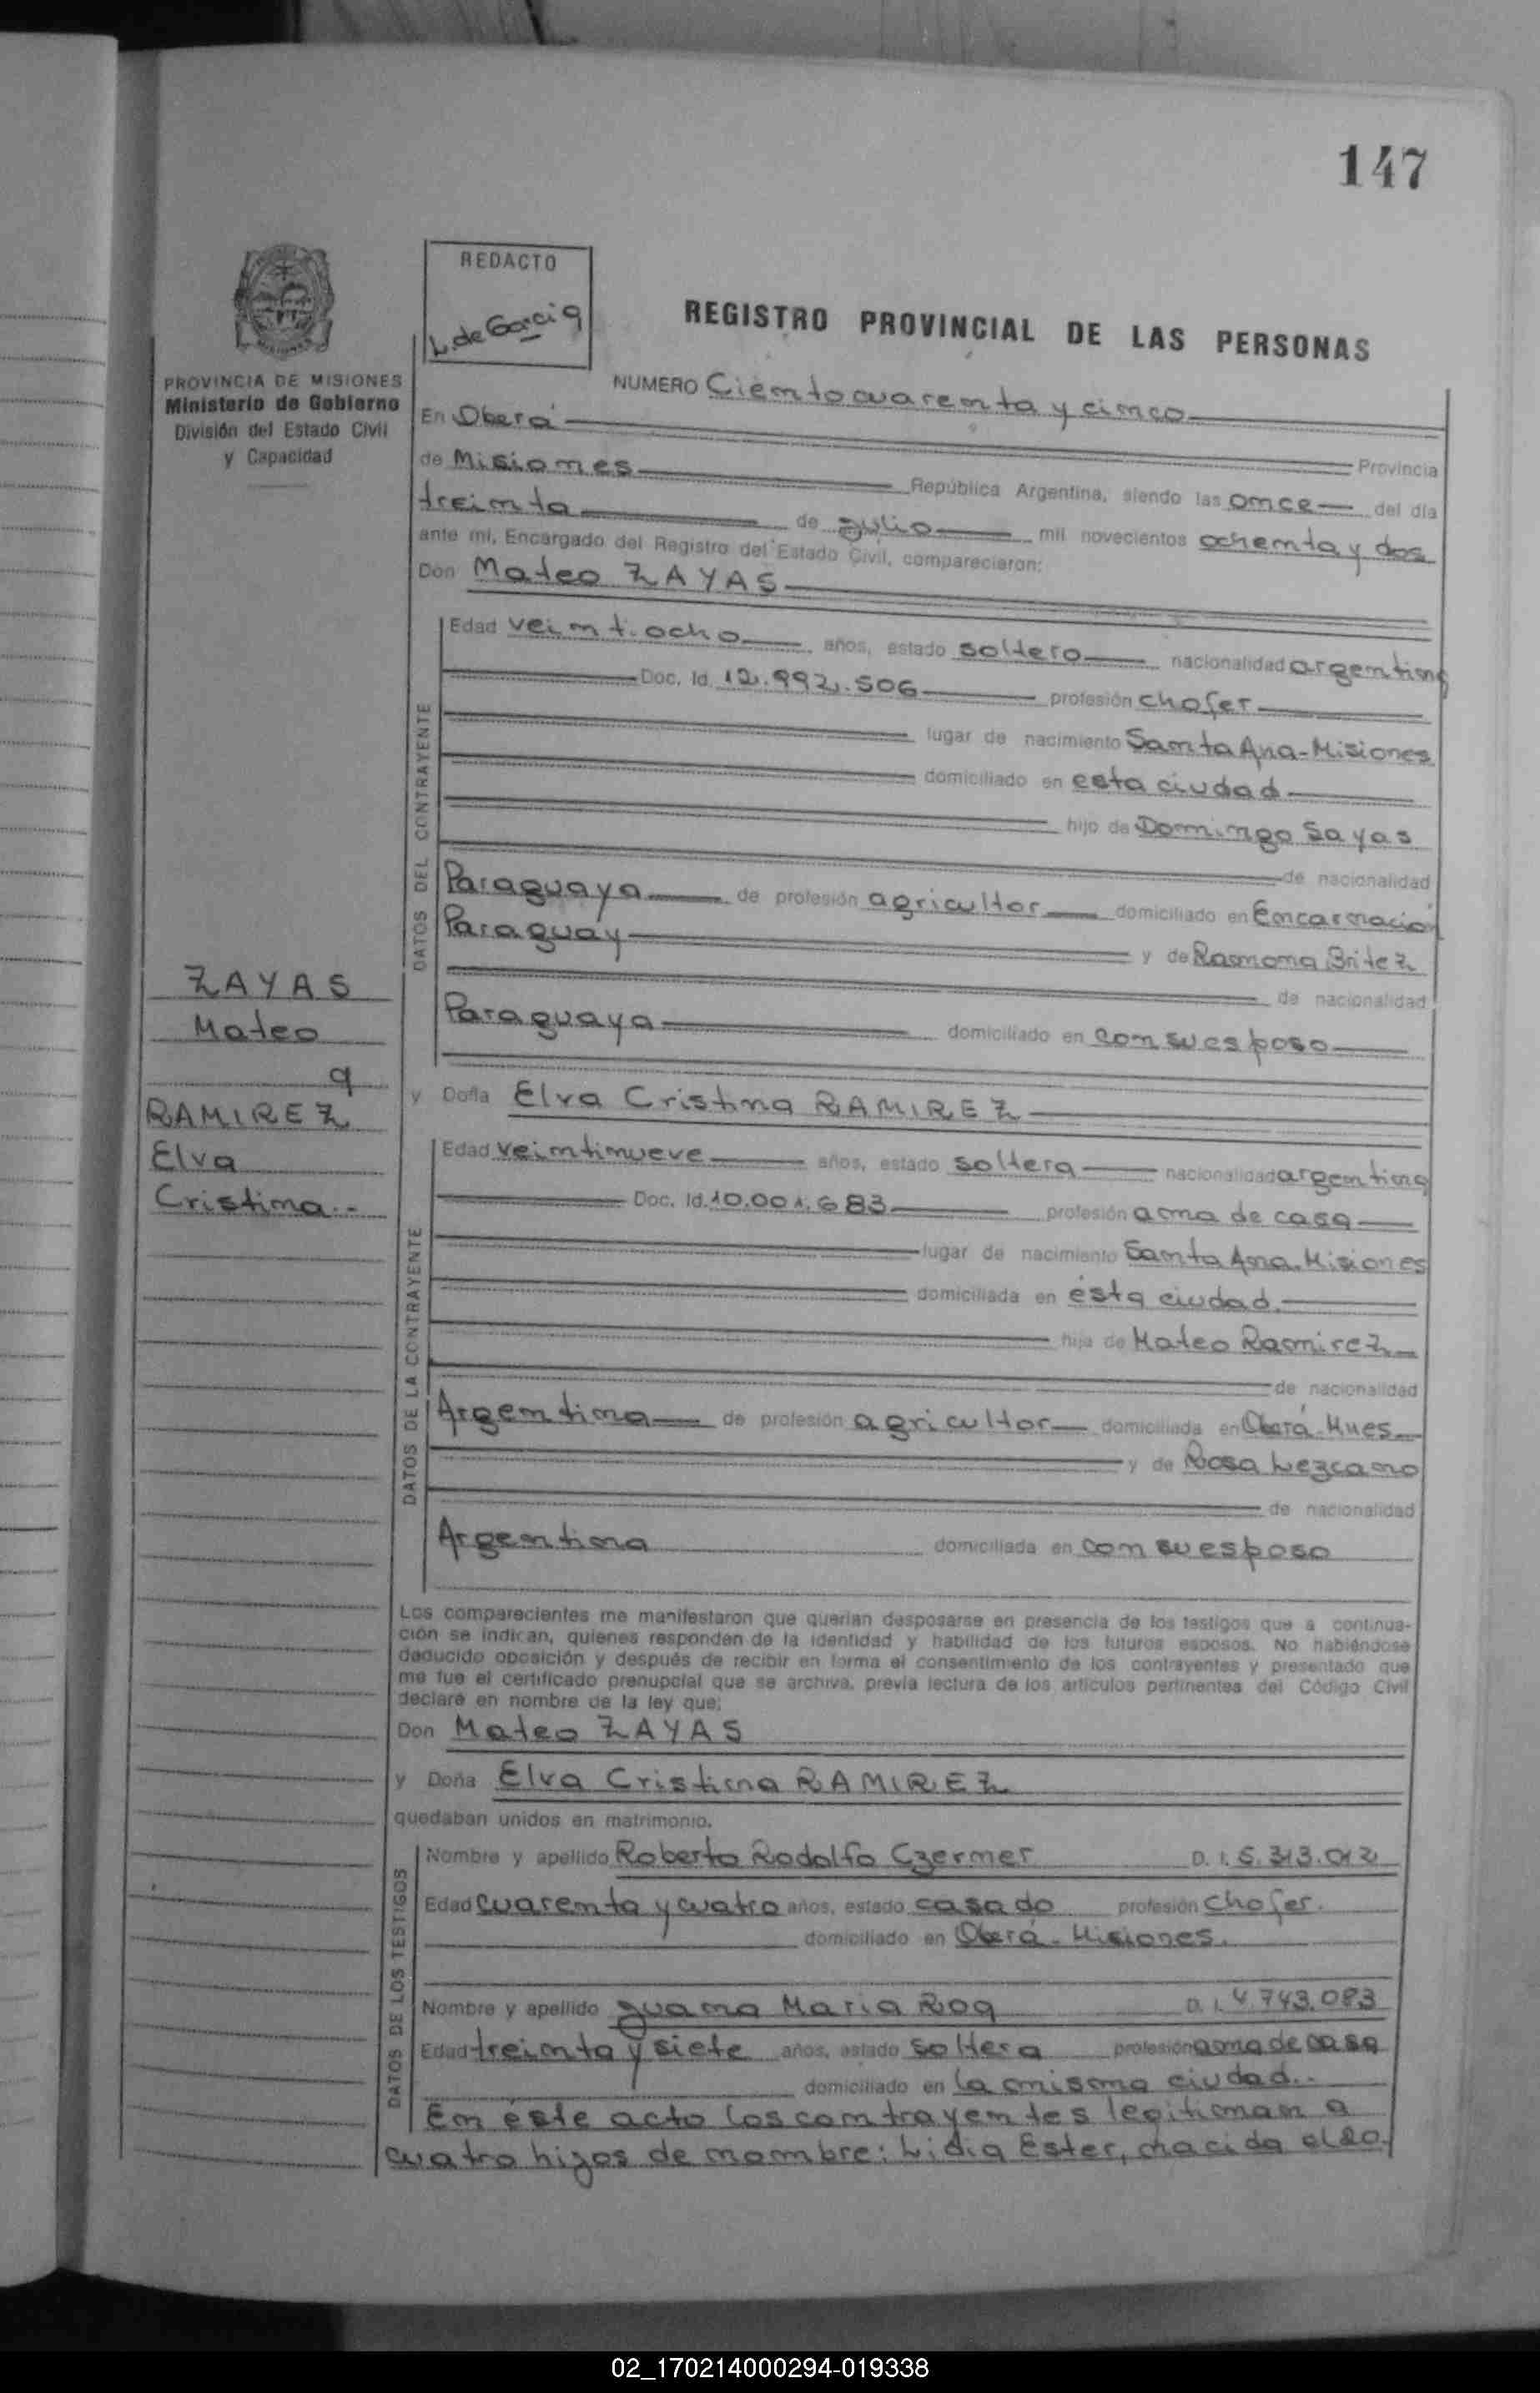 147
REDACTO
L. de Garcia
REGISTRO PROVINCIAL DE LAS PERSONAS
PROVINCIA DE MISIONES
Ministerio de Gobierno
División del Estado Civil
y Capacidad
NUMERO Ciento cuarenta y cinco
En Oberá
Provincia
de Misiones República Argentina, siendo las once del día
treinta de Julio mil novecientos ochenta y dos
ante mi, Encargado del Registro del Estado Civil, comparecieron:
Don Mateo ZAYAS
DATOS DEL CONTRAYENTE
Edad veintiocho años, estado soltero nacionalidad argentina
Doc. Id. 12.992.506 profesión chofer
lugar de nacimiento Santa Ana-Misiones
domiciliado en esta ciudad
hijo de Domingo Sayas
de nacionalidad
Paraguaya de profesión agricultor domiciliado en Encarnación
Paraguay y de Ramona Britez
de nacionalidad
Paraguaya domiciliado en con su esposo
ZAYAS
Mateo
a
RAMIREZ
Elva
Cristina.-
y Doña Elva Cristina RAMIREZ
DATOS DE LA CONTRAYENTE
Edad veintinueve años, estado soltera nacionalidad argentina
Doc. Id. 10.001.683 profesión ama de casa
lugar de nacimiento Santa Ana. Misiones
domiciliada en ésta ciudad.
hija de Mateo Ramirez
de nacionalidad
Argentina de profesión agricultor domiciliada en Oberá-Mnes
y de Rosa Lezcano
de nacionalidad
Argentina domiciliada en con su esposo
Los comparecientes me manifestaron que querían desposarse en presencia de los testigos que a continua-
ción se indican, quienes responden de la identidad y habilidad de los futuros esposos. No habiéndose
deducido oposición y después de recibir en forma el consentimiento de los contrayentes y presentado que
me fue el certificado prenupcial que se archiva, previa lectura de los artículos pertinentes del Código Civil
declaré en nombre de la ley que:
Don Mateo ZAYAS
y Doña Elva Cristina RAMIREZ
quedaban unidos en matrimonio.
DATOS DE LOS TESTIGOS
Nombre y apellido Roberto Rodolfo Czerner D. I. 5.313.012
Edad cuarenta y cuatro años, estado casado profesión chofer.
domiciliado en Oberá - Misiones.
Nombre y apellido Juana Maria Roa D. I. 4.743.083
Edad treinta y siete años, estado soltera profesión ama de casa
domiciliado en la misma ciudad..
En éste acto los contrayentes legitiman a
cuatro hijos de nombre: Lidia Ester, nacida el 20.
02_170214000294-019338